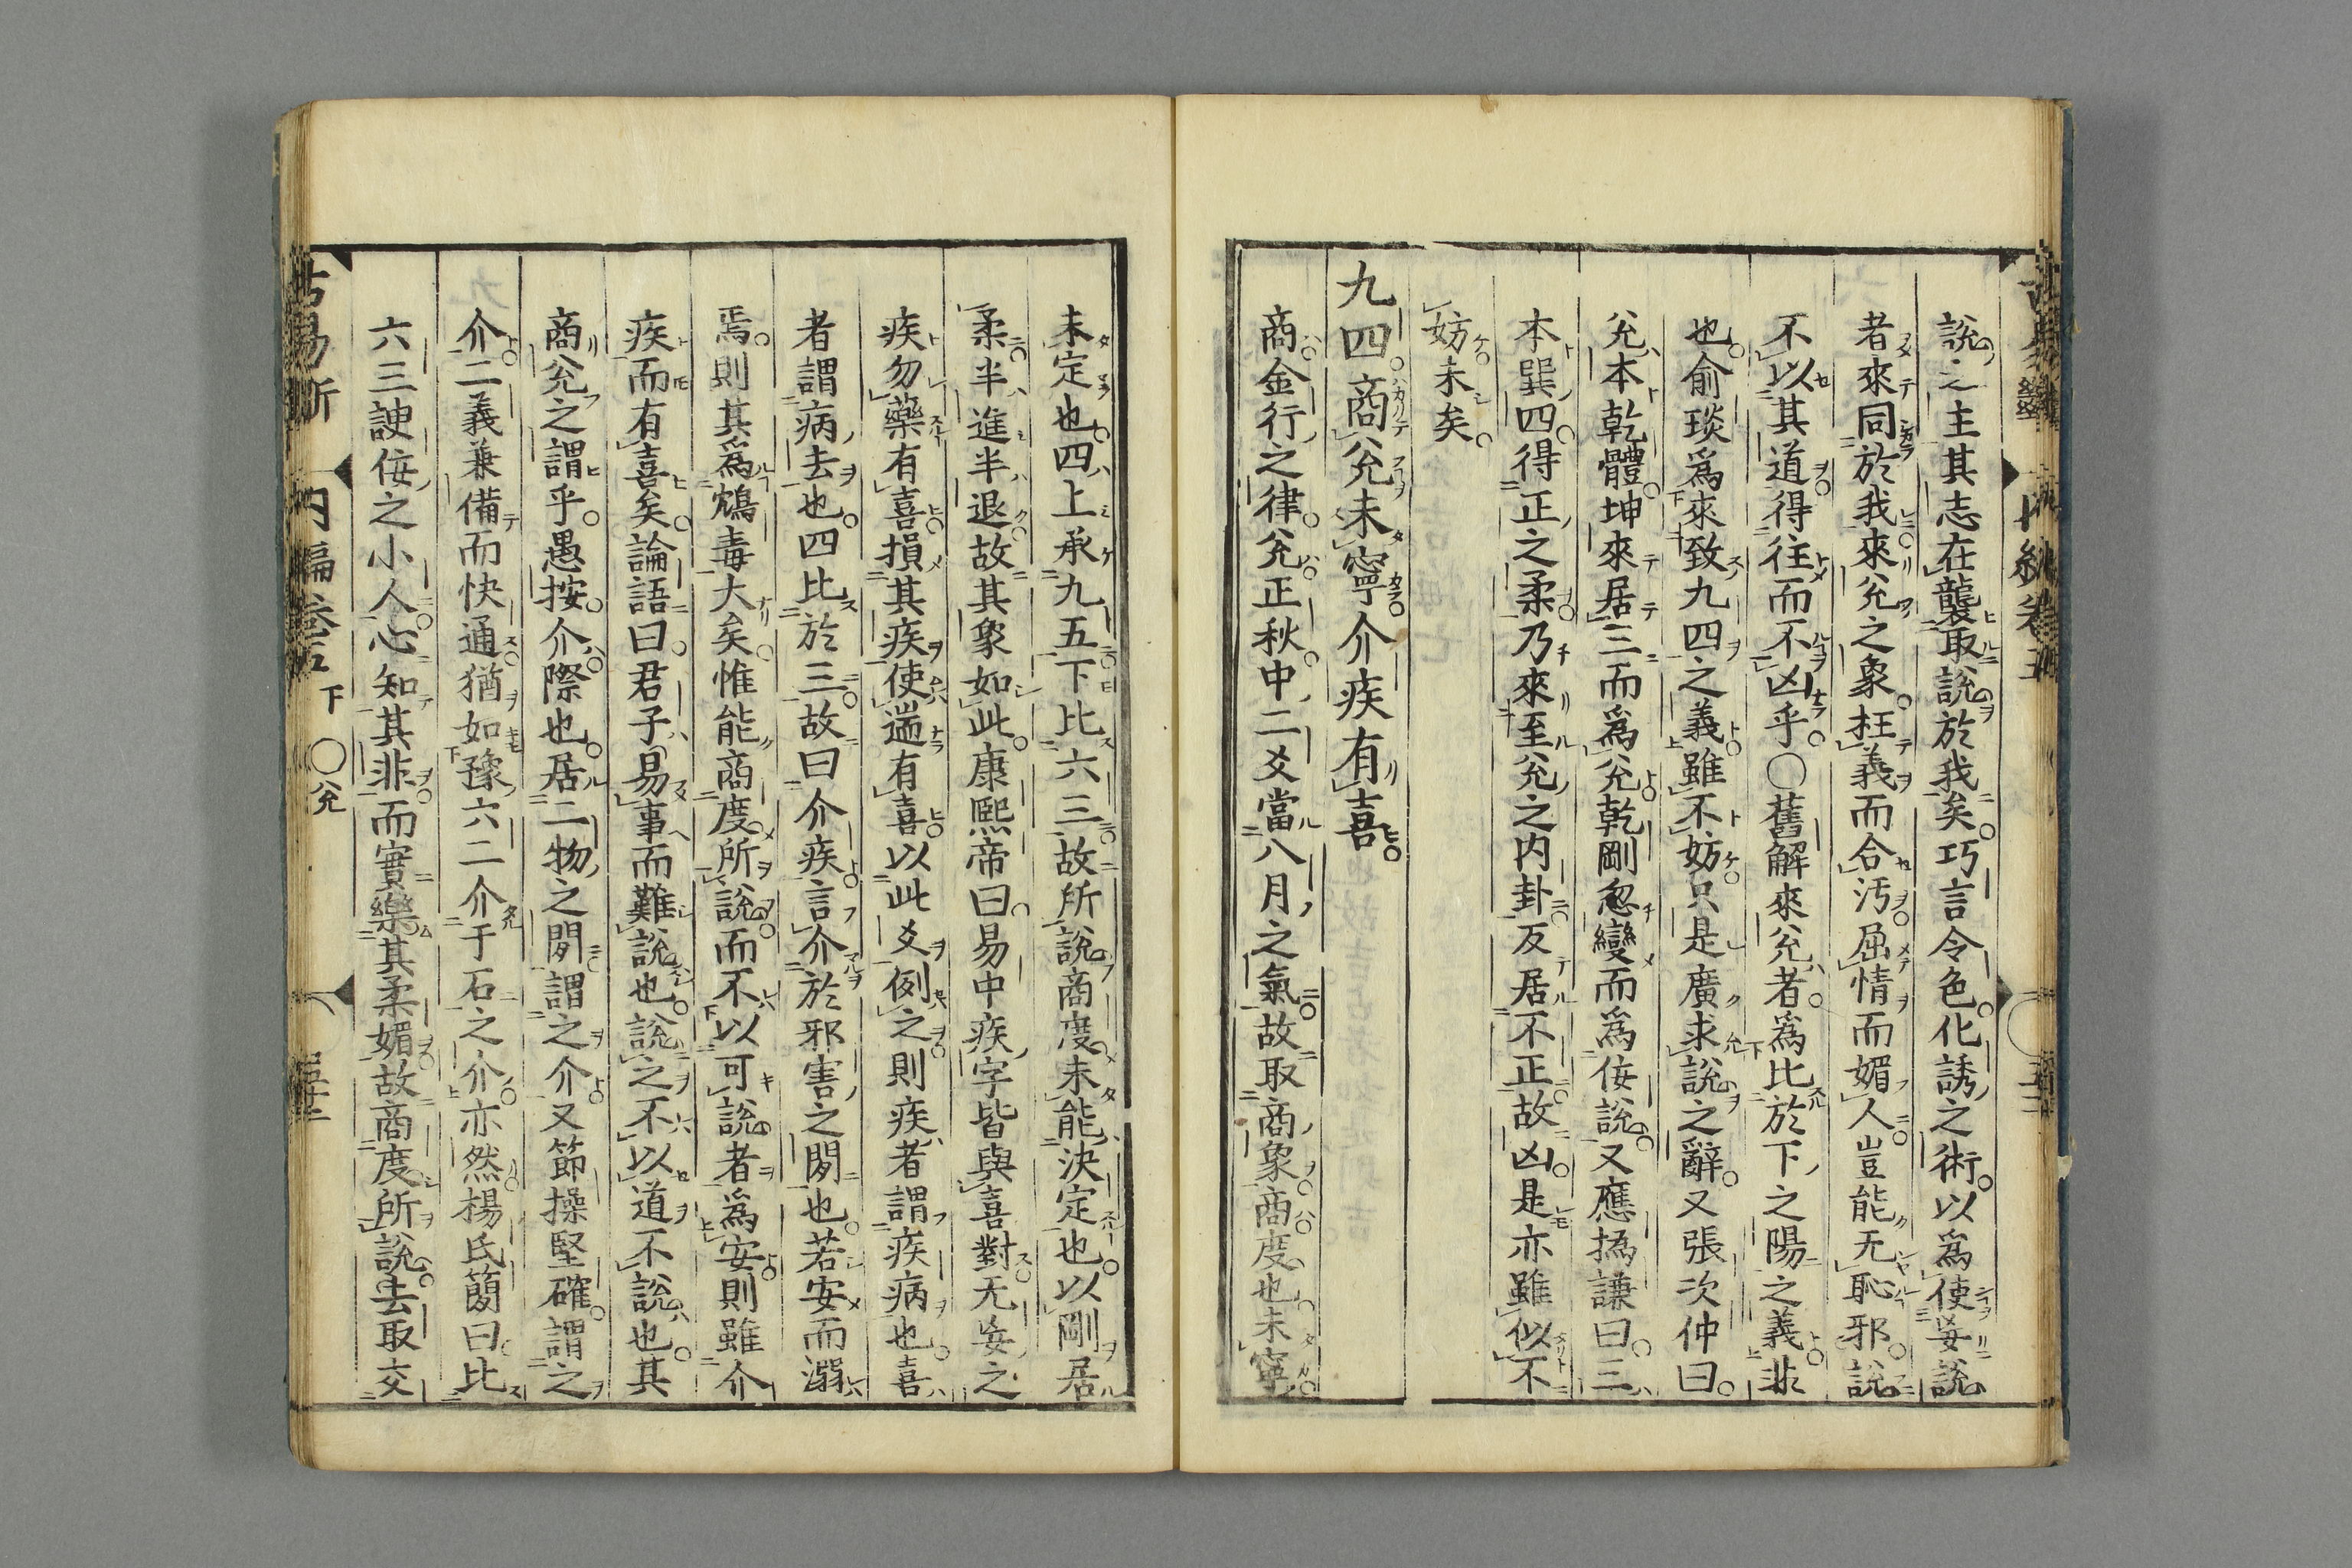 說之主其志在襲取說於我矣巧言令色化誘之術以爲使妄說
者來同於我來兊之象枉義而合汚屈情而媚人豈能无恥邪說
不以其道得往而不凶乎〇舊解來兊者爲比於下之陽之義非
也俞琰爲來致九四之義雖不妨只是廣求說之辭又張次仲曰
兊本乾體坤來居三而爲兊乾剛忽變而爲佞說又應撝謙曰三
本巽四得正之柔乃來至兊之内卦反居不正故凶是亦雖似不
妨未矣
九四商兊未寧介疾有喜
商金行之律兊正秋中二爻當八月之氣故取商象商度也未寧
未定也四上承九五下比六三故所說商度未能決定也以剛居
柔半進半退故其象如此康熙帝曰易中疾字皆與喜對无妄之
疾勿藥有喜損其疾使遄有喜以此爻例之則疾者謂疾病也喜
者謂病去也四比於三故曰介疾言介於邪害之閒也若安而溺
焉則其爲鴆毒大矣惟能商度所說而不以可說者爲安則雖介
疾而有喜矣論語曰君子易事而難說也說之不以道不說也其
商兊之謂乎愚按介際也居二物之閒謂之介又節操堅確謂之
介二義兼備而快通猶如豫六二介于石之介亦然楊氏蕳曰比
六三諛佞之小人心知其非而實樂其柔媚故商度所說去取交
古易斷 内編卷五下 〇兊